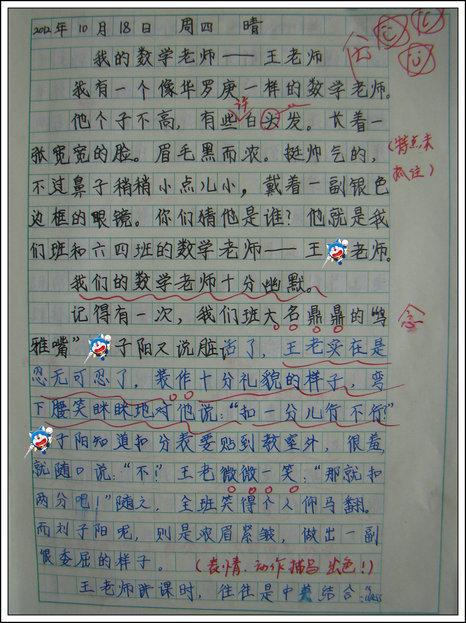 2012年10月18日 周四 晴
我的数学老师——王老师
我有一个像华罗庚一样的数学老师。
他个子不高，有些许白头发。长着一
张宽宽的脸。眉毛黑而浓。挺帅气的，
(特点未
抓住)
不过鼻子稍稍小点儿小，戴着一副银色
边框的眼镜。你们猜他是谁？他就是我
们班和六四班的数学老师——王老师。
我们的数学老师十分幽默。
记得有一次，我们班大名鼎鼎的"鸣
雅嘴"子阳又说脏话了，王老实在是
忍无可忍了，装作十分礼貌的样子，弯
下腰笑眯眯地对他说："扣一分儿行不行？"
子阳知道扣分表要贴到教室外，很羞，
就随口说："不！"王老微微一笑："那就扣
两分吧！"随之，全班笑得个人仰马翻。
而刘子阳呢，则是浓眉紧皱，做出一副
很委屈的样子。(表情、动作描写出色！)
王老师讲课时，往往是中美结合：